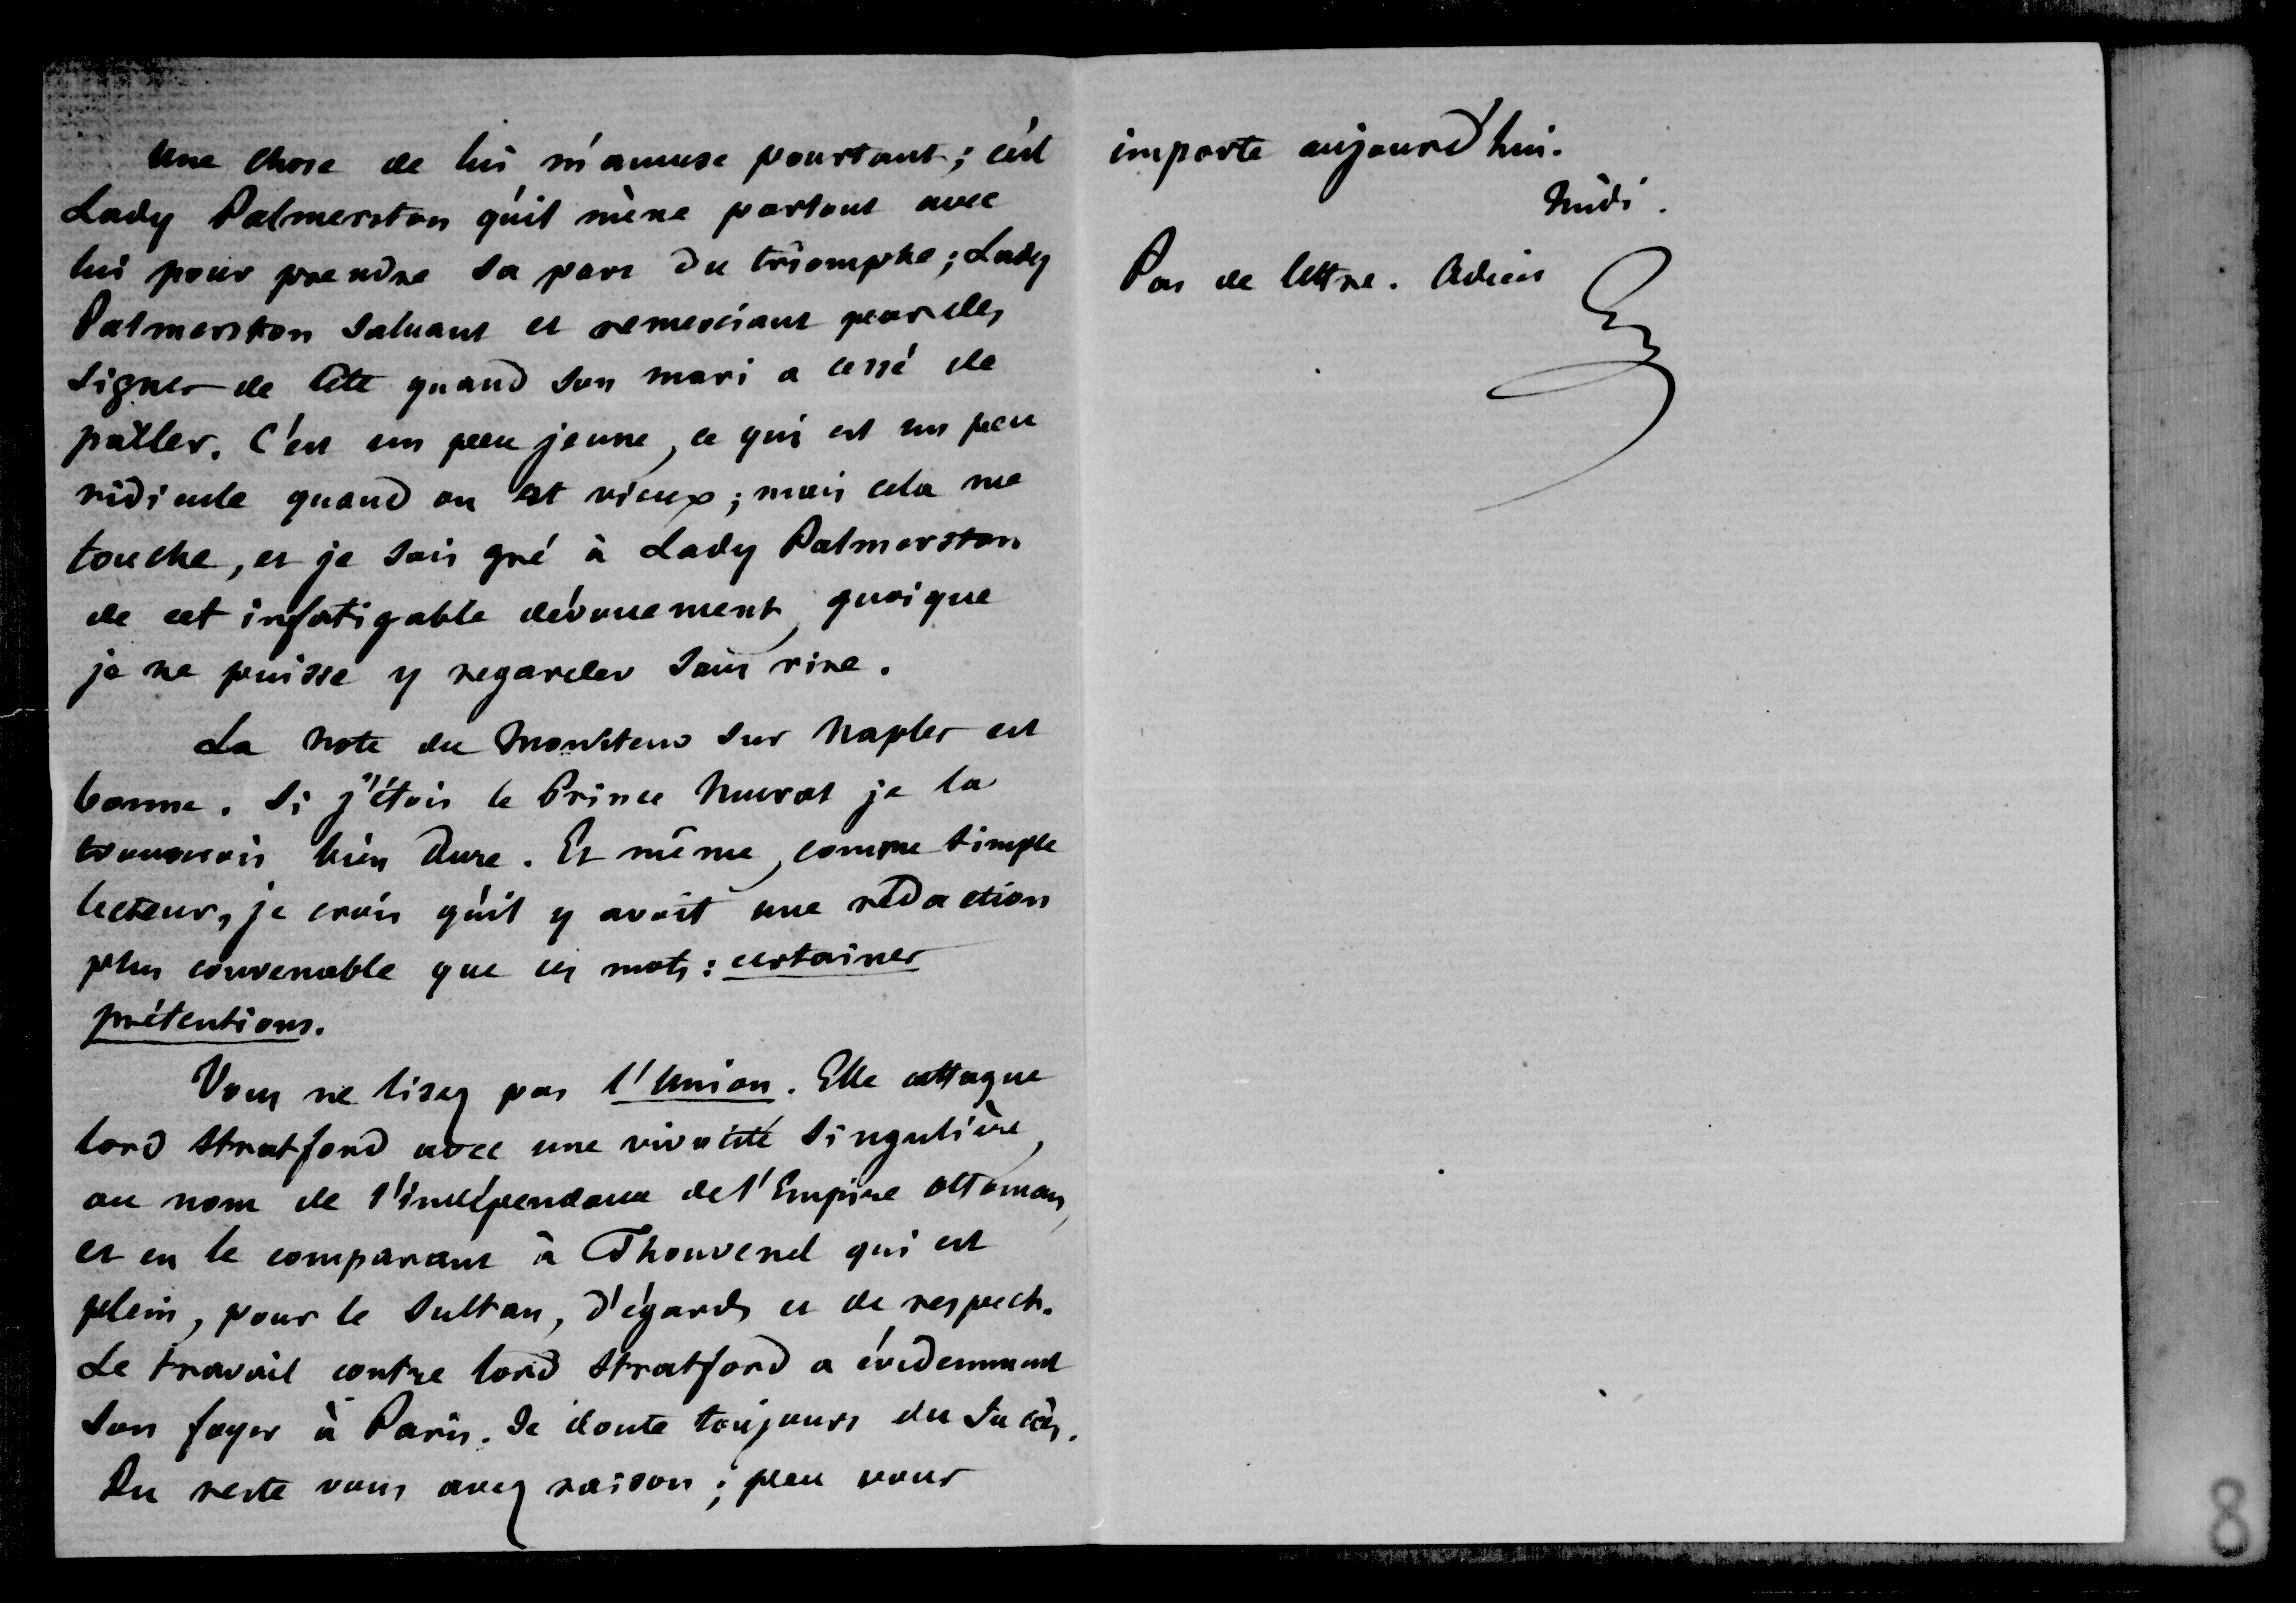 Une chose de lui m'amuse pourtant ; c'est
Lady Palmerston qu'il mène partout avec
lui pour prendre sa part du triomphe ; Lady
Palmerston saluant et remerciant par des
signes de tête quand son mari a cessé de
parler. C'est un peu jeune, ce qui est un peu
ridicule quand on est vieux ; mais cela me
touche, et je sais gré à Lady Palmerston
de cet infatigable dévouement, quoique
je ne puisse y regarder sans rire.
La note du Moniteur sur Naples est
bonne. Si j'étois le Prince Murat je la
trouverois bien dure. Et même, comme simple
lecteur, je crois qu'il y avoit une rédaction
plus convenable que ces mots : certaines
prétentions.
Vous ne lisez pas l'Union. Elle attaque
lord Stratford avec une vivacité singulière,
au nom de l'indépendance de l'Empire ottoman,
et en le comparant à Thouvenel qui est
plein, pour le Sultan, d'égards et de respect.
Le travail contre lord Stratford a évidemment
son foyer à Paris. Je doute toujours du succès.
Du reste vous avez raison ; peu vous
importe aujourd'hui.
Midi.
Pas de lettre. Adieu
8